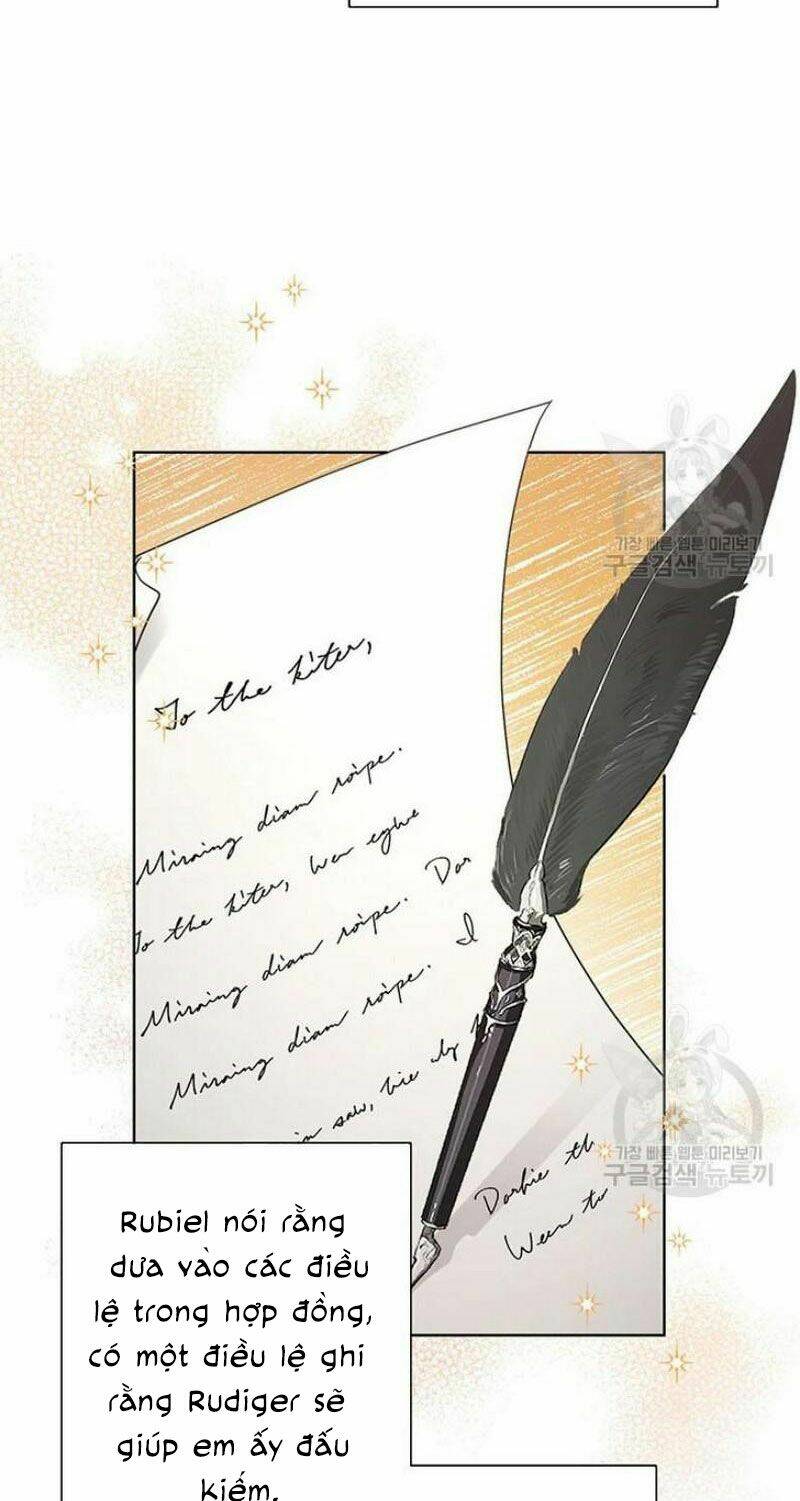 가장 빠른 웹툰 미리보기
구글검색 뉴토끼
To the kiter,
Miraing diam roipe.
To the kiter, Wen eghe
Miraing diam roipe. Dor
Miraing diam roipe. I
in saw, hie dy
가장 빠른 웹툰 미리보기
구글검색 뉴토끼
Dorhie th
Ween tw
Rubiel nói rằng
dưa vào các điều
lệ trong hợp đồng,
có một điều lệ ghi
rằng Rudiger sẽ
giúp em ấy đấu
kiếm.